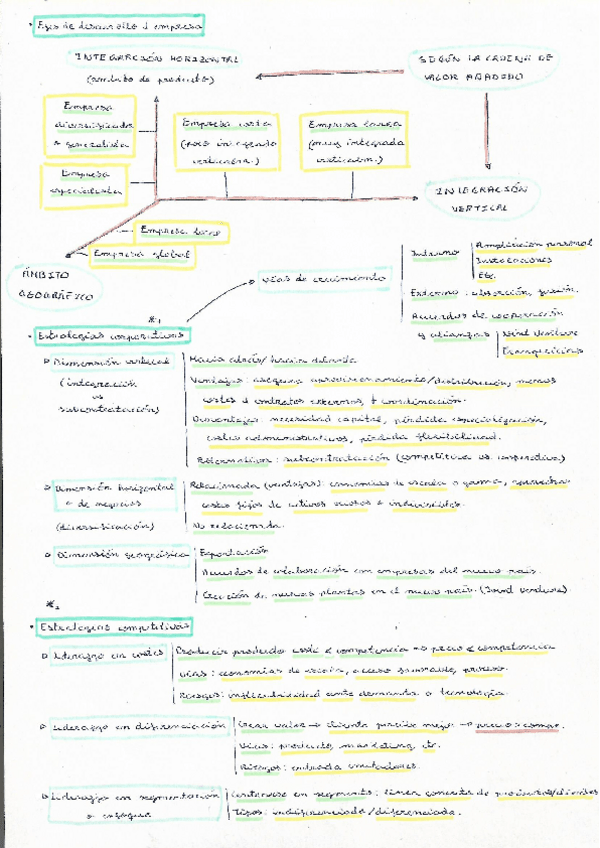 Ejes de desarrollo d empresa
INTEGRACIÓN HORIZONTAL
(ámbito de producto)
SEGÚN LA CADENA DE
VALOR AÑADIDO
Empresa
diversificada
o generalista
Empresa corta
(poco integrada
verticalm.)
Empresa larga
(muy integrada
verticalm.)
Empresa
especialista
INTEGRACIÓN
VERTICAL
Empresa local
Empresa global
ÁMBITO
GEOGRÁFICO
Vías de crecimiento
Interno
Ampliación personal
Instalaciones
Etc.
Externo: absorción, fusión.
Acuerdos de cooperación
y alianzas
Joint Venture
Franquicias
*1
Estrategias corporativas
Dimensión vertical
(integración
vs
subcontratación)
Hacia atrás/hacia delante
Ventajas: asegura aprovisionamiento/distribución, menos
costes d contratos externos, + coordinación.
Desventajas: necesidad capital, pérdida especialización,
costes administrativos, pérdida flexibilidad.
Alternativa: subcontratación (competitiva vs. cooperativa)
Dimensión horizontal
o de negocios
(diversificación)
Relacionada (ventajas): economías de escala o gama, aprovecha
costes fijos de activos indivisibles.
No relacionada.
Dimensión geográfica
Exportación
Acuerdos de colaboración con empresas del nuevo país.
Creación de nuevas plantas en el nuevo país. (Joint Venture)
*2
Estrategias competitivas
Liderazgo en costes
Producir producto coste < competencia → precio < competencia
Vías: economías de escala, acceso favorable, proceso.
Riesgos: inflexibilidad ante demanda o tecnología.
Liderazgo en diferenciación
Crear valor → cliente percibe mejor → precio > comp.
Vías: producto, marketing, etc.
Riesgos: entrada imitadores.
Liderazgo en segmentación
o enfoque
Centrarse en segmento: línea concreta de productos/clientes
Tipos: indiferenciada/diferenciada.